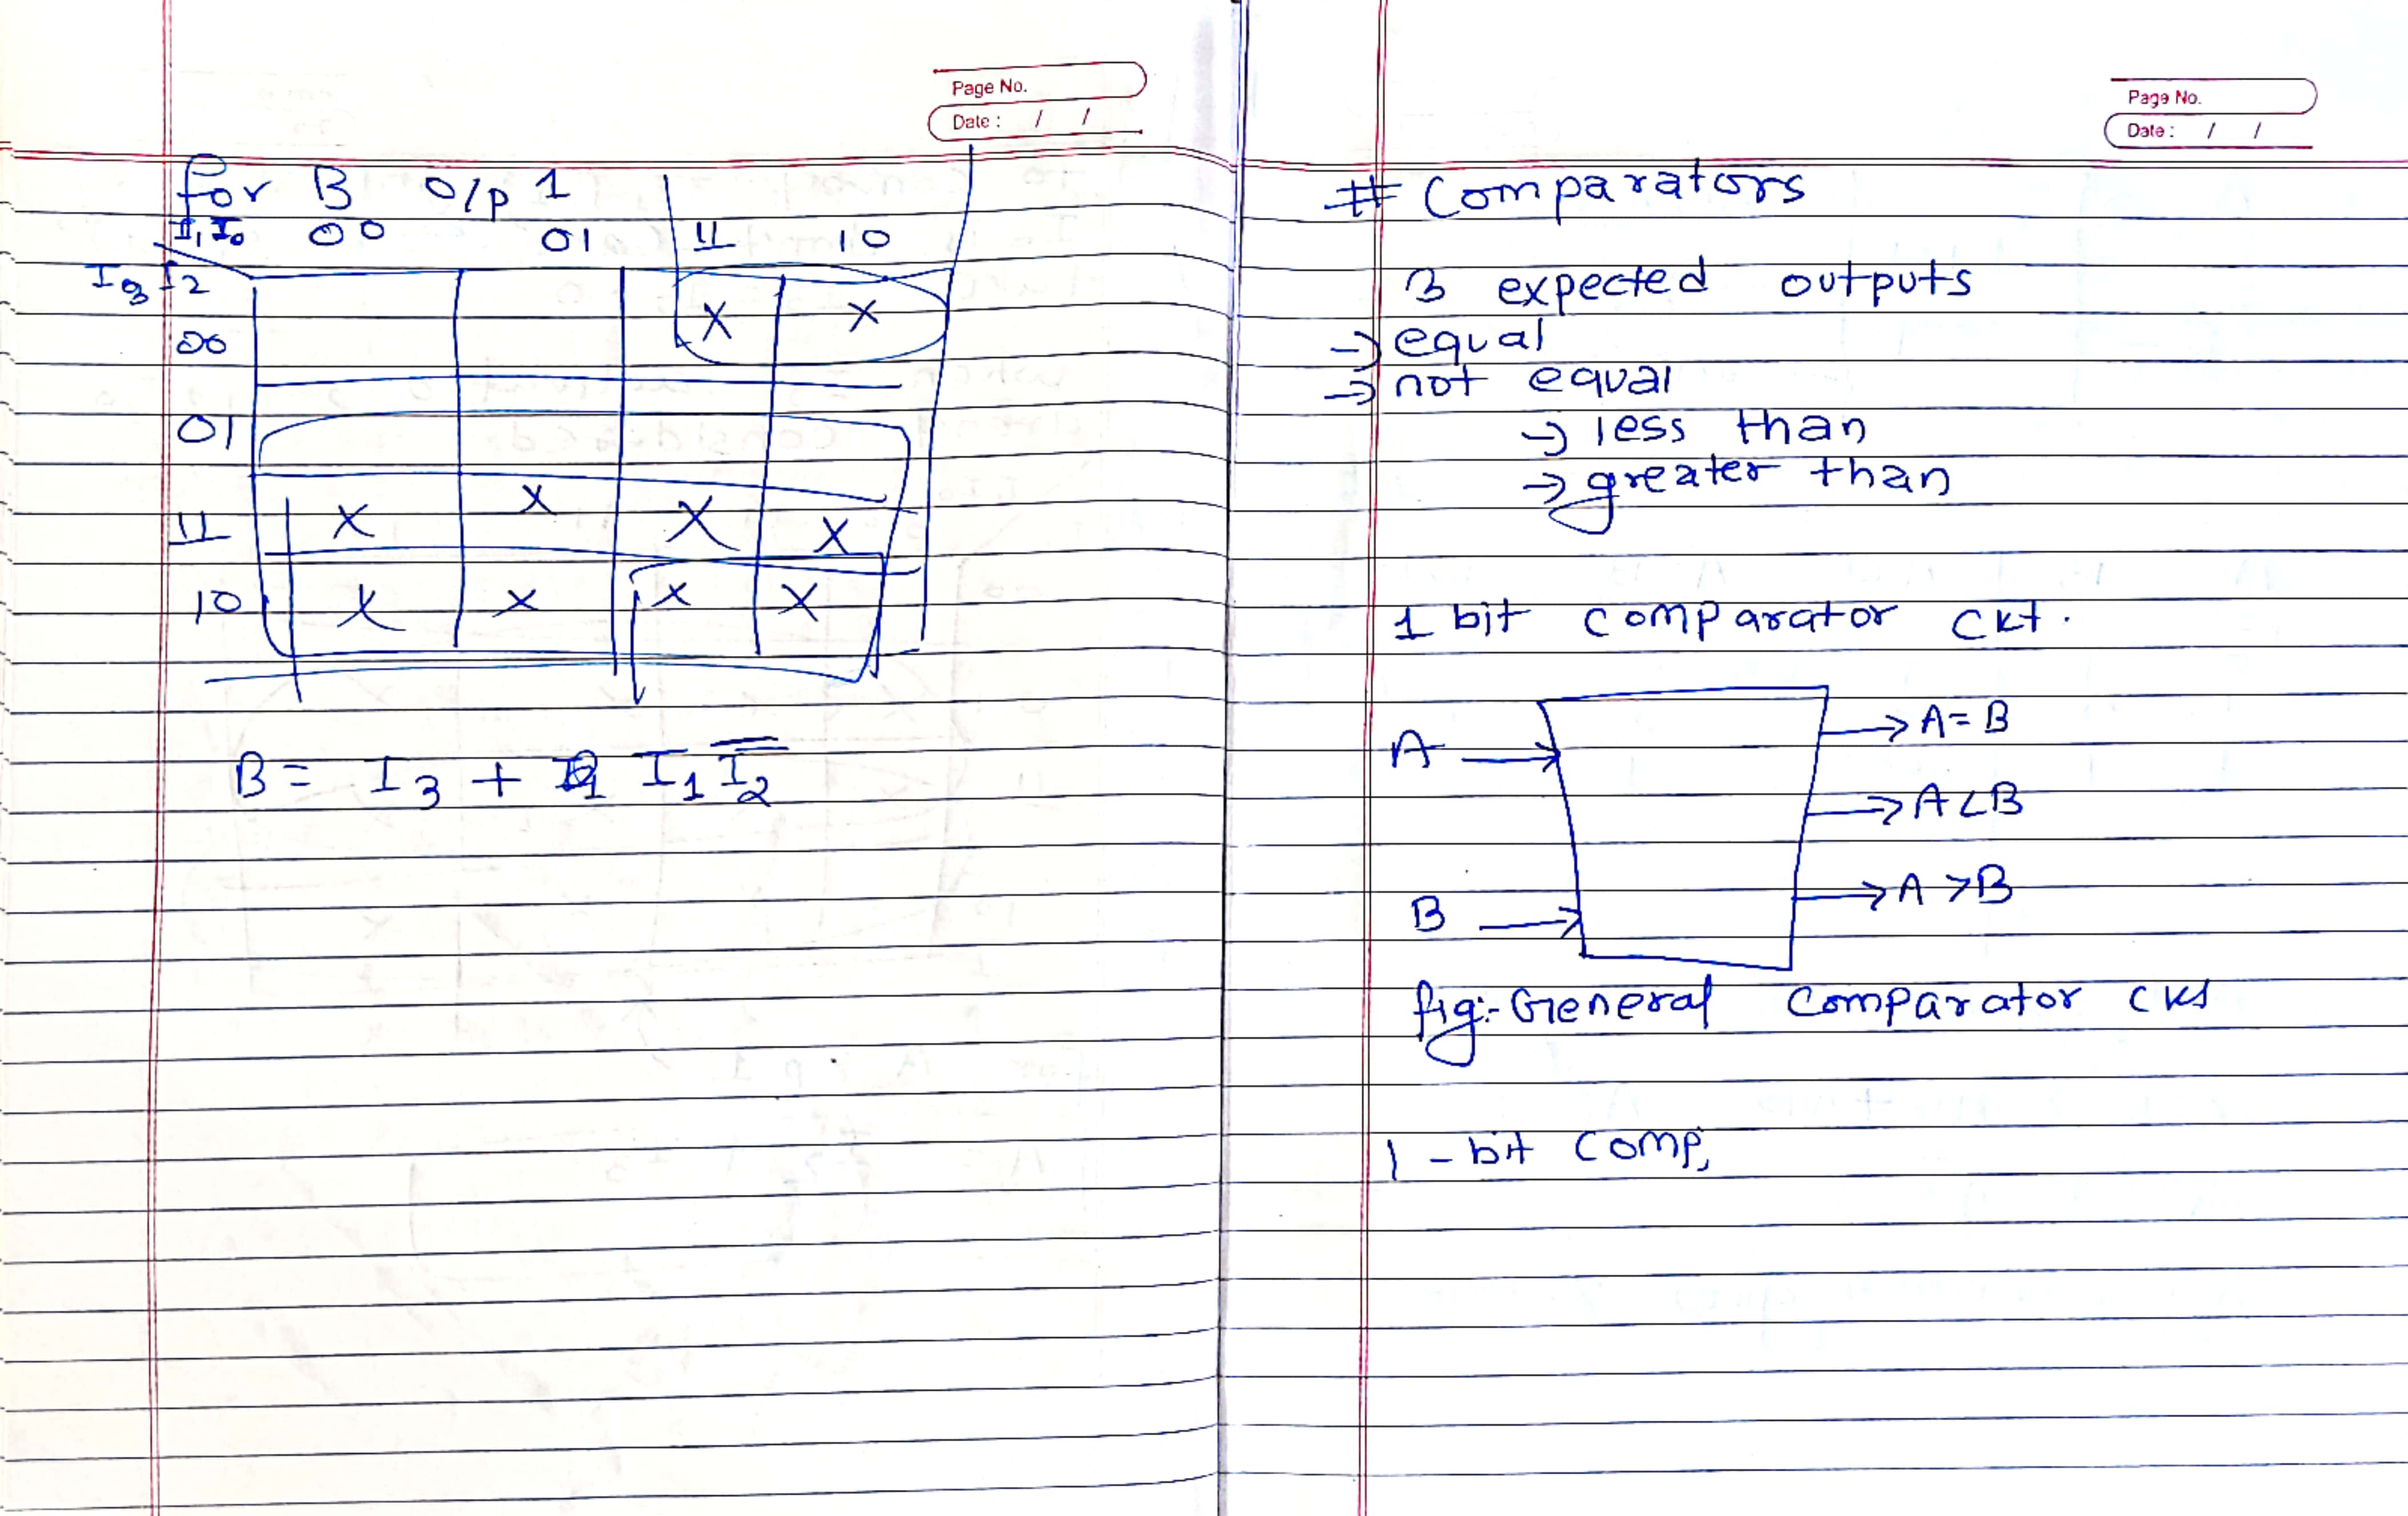 Page No.
Date : / /
for B o/p 1
I1 I0 00 01 11 10
I3 I2
00 X X
01
11 X X X X
10 X X X X
B = I3 + I1 I̅2
Page No.
Date : / /
# Comparators
3 expected outputs
→ equal
→ not equal
→ less than
→ greater than
1 bit comparator ckt.
A → → A=B
→ A<B
B → → A >B
fig:- General comparator
1 - bit comp,